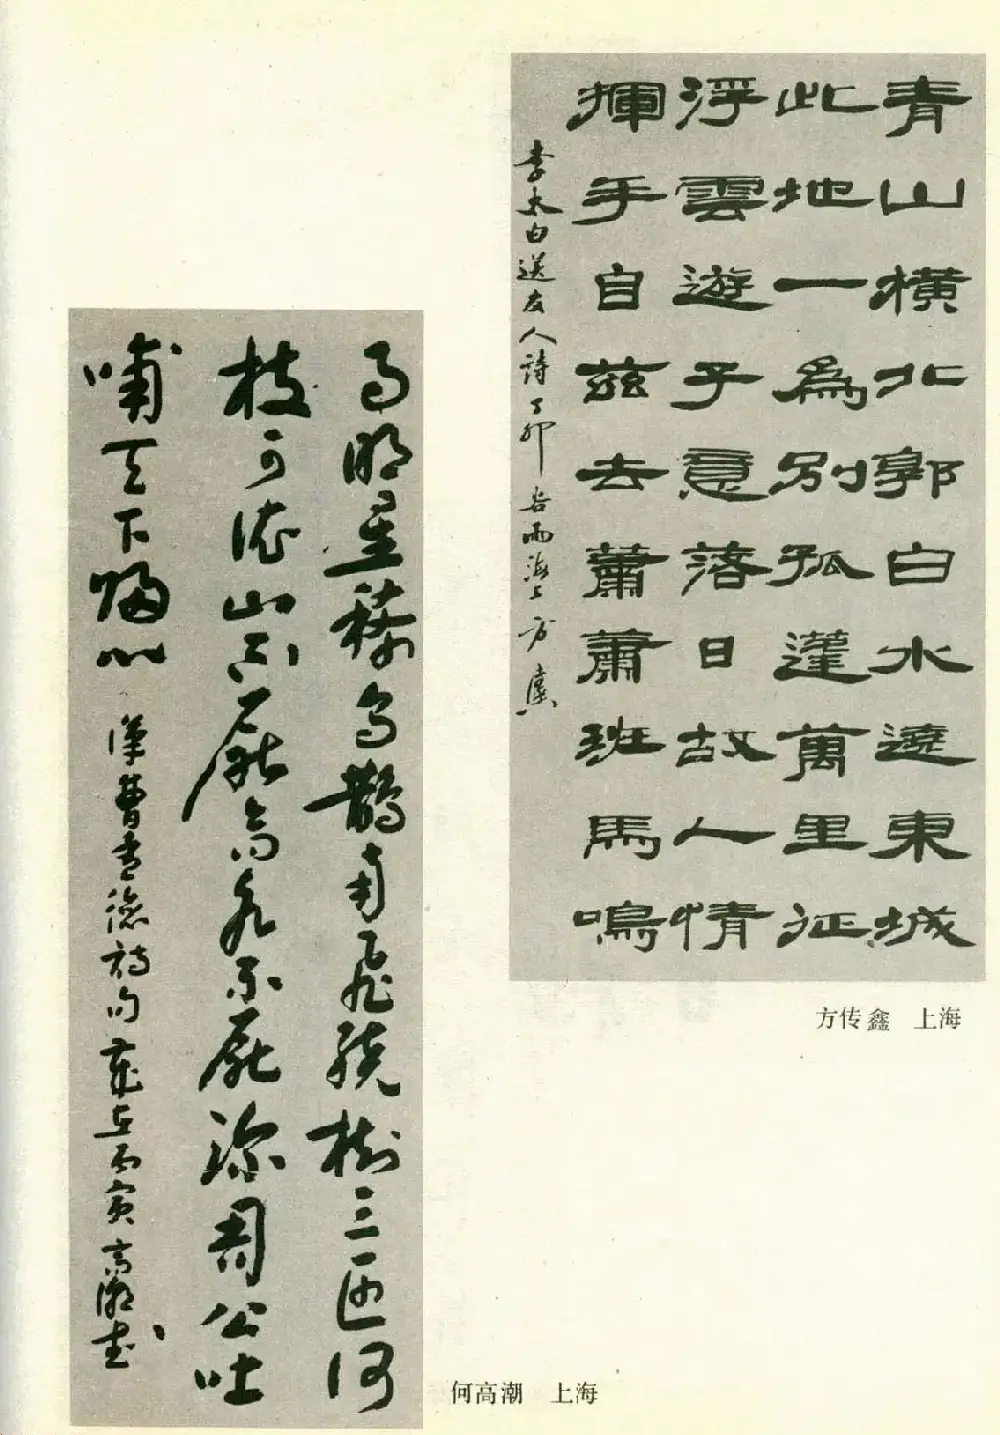 青山橫北郭白水遶東城
此地一爲別孤蓬萬里征
浮雲遊子意落日故人情
揮手自兹去蕭蕭班馬鳴
李太白送友人詩 丁卯 谷雨海上 方
方传鑫 上海
月明星稀烏鵲南飛繞樹三匝何
枝可依山不厭高水不厭深周公吐
哺天下歸心
漢曹孟德詩句歲在丙寅高潮書
何高潮 上海